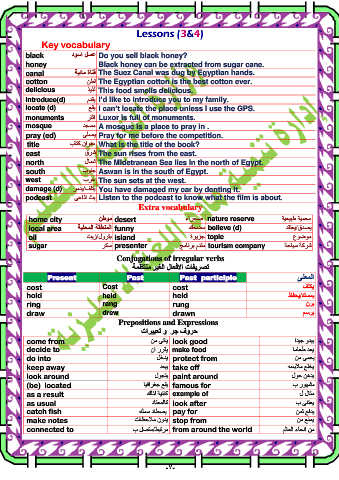 Lessons (3&4)
Key vocabulary
black عسل اسود Do you sell black honey?
honey Black honey can be extracted from sugar cane.
canal قناة مائية The Suez Canal was dug by Egyptian hands.
cotton قطن The Egyptian cotton is the best cotton ever.
delicious لذيذ This food smells delicious.
introduce(d) يقدم I'd like to introduce you to my family.
locate (d) يقع I can't locate the place unless I use the GPS.
monuments اثار Luxor is full of monuments.
mosque مسجد A mosque is a place to pray in .
pray (ed) يصلي Pray for me before the competition.
title عنوان كتاب What is the title of the book?
east شرق The sun rises from the east.
north شمال The Midetranean Sea lies in the north of Egypt.
south جنوب Aswan is in the south of Egypt.
west غرب The sun sets at the west.
damage (d) You have damaged my car by denting it.
podcast Listen to the podcast to know what the film is about.
Extra vocabulary
home city موطن desert صحراء nature reserve محمية طبيعية
local area المنطقة المحلية funny مضحك believe (d)
oil island جزيرة topic موضوع
sugar سكر presenter مقدم برنامج tourism company شركة سياحة
Conjugations of irregular verbs
تصريفات الافعال الغير منتظمة
Present Past Past participle المعنى
cost Cost cost يكلف
hold held held
ring rang rung يرن
draw drew drawn يرسم
Prepositions and Expressions
حروف جر و تعبيرات
come from يأتي من look good يبدو جيدا
decide to يقرر أن make food يعد طعاما
do into protect from يحمي من
keep away يبعد take off يخلع ملابسه
look around يتجول paint around يدهن حول
(be) located يقع جغرافيا famous for مشهور ب
as a result كنتيجة لذلك example of مثال ل
as usual كالمعتاد look after يعتني ب
catch fish يصطاد سمك pay for يدفع ثمن
make notes يدون ملاحظات stop from يمنع من
connected to مرتبط/متصل ب from around the world من أنحاء العالم
-٧-